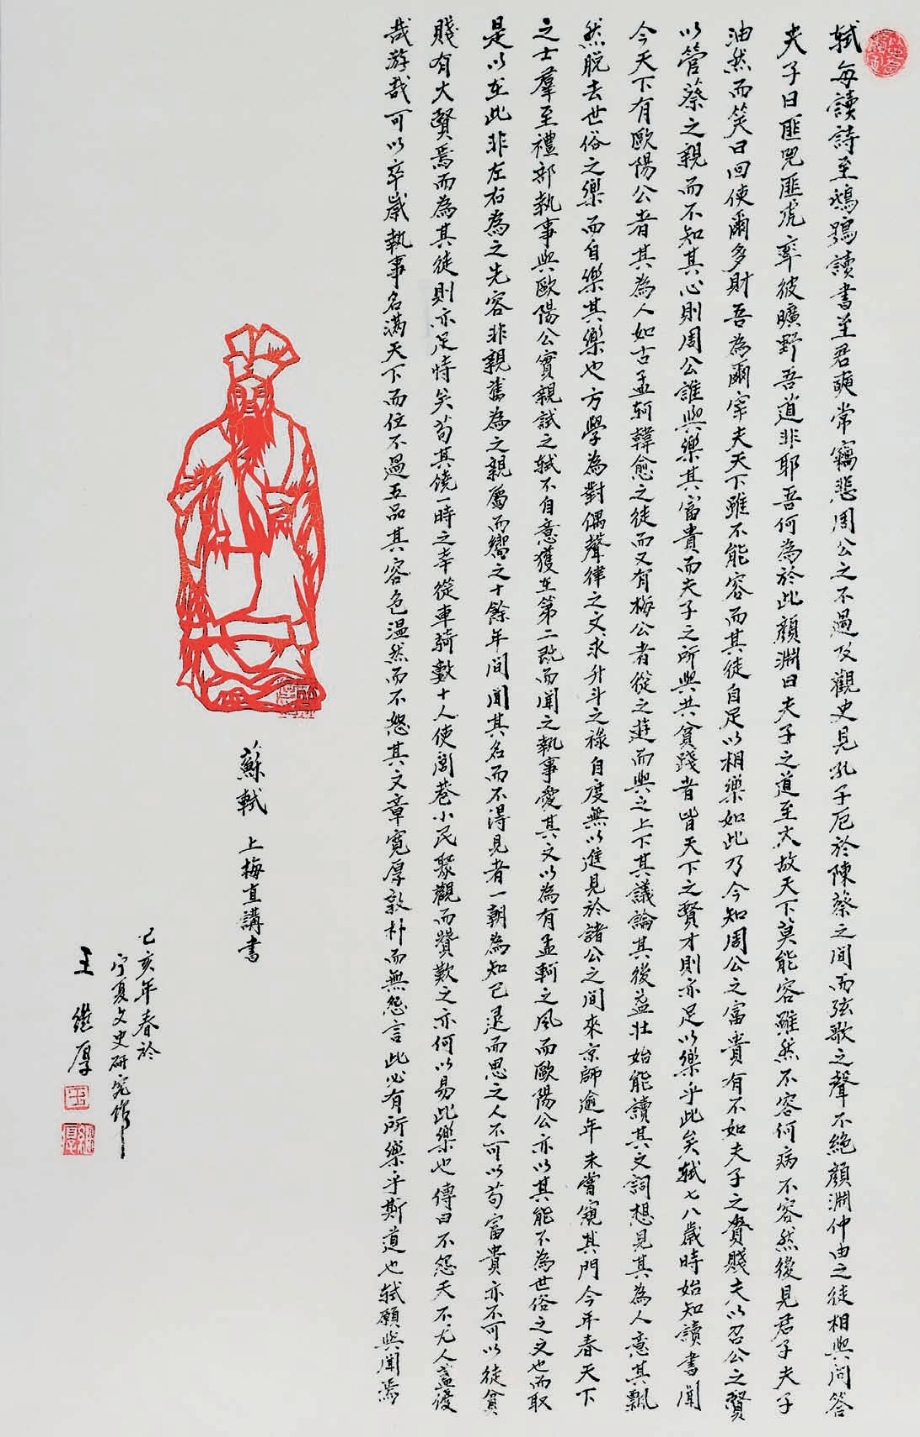 軾每讀詩至鴟鴞讀書至君奭常竊悲周公之不遇及觀史見孔子厄於陳蔡之間而弦歌之聲不絕顏淵仲由之徒相與問答
夫子曰匪兕匪虎率彼曠野吾道非耶吾何為於此顏淵曰夫子之道至大故天下莫能容雖然不容何病不容然後見君子夫子
油然而笑曰回使爾多財吾為爾宰夫天下雖不能容而其徒自足以相樂如此乃今知周公之富貴有不如夫子之貧賤夫以召公之賢
以管蔡之親而不知其心則周公誰與樂其富貴而夫子之所與共貧賤者皆天下之賢才則亦足以樂乎此矣軾七八歲時始知讀書聞
今天下有歐陽公者其為人如古孟軻韓愈之徒而又有梅公者從之遊而與之上下其議論其後益壯始能讀其文詞想見其為人意其飄
然脫去世俗之樂而自樂其樂也方學為對偶聲律之文求升斗之祿自度無以進見於諸公之間來京師逾年未嘗窺其門今年春天下
之士羣至禮部執事與歐陽公實親試之軾不自意獲在第二既而聞之執事愛其文以為有孟軻之風而歐陽公亦以其能不為世俗之文也而取
是以在此非左右為之先容非親舊為之親屬而嚮之十餘年間聞其名而不得見者一朝為知己退而思之人不可以苟富貴亦不可以徒貧
賤有大賢焉而為其徒則亦足恃矣苟其僥一時之幸從車騎數十人使閭巷小民聚觀而贊歎之亦何以易此樂也傳曰不怨天不尤人蓋優
哉游哉可以卒歲執事名滿天下而位不過五品其容色温然而不怒其文章寬厚敦朴而無怨言此必有所樂乎斯道也軾願與聞焉
蘇軾 上梅直講書
己亥年春於
宁夏文史研究館
王继厚